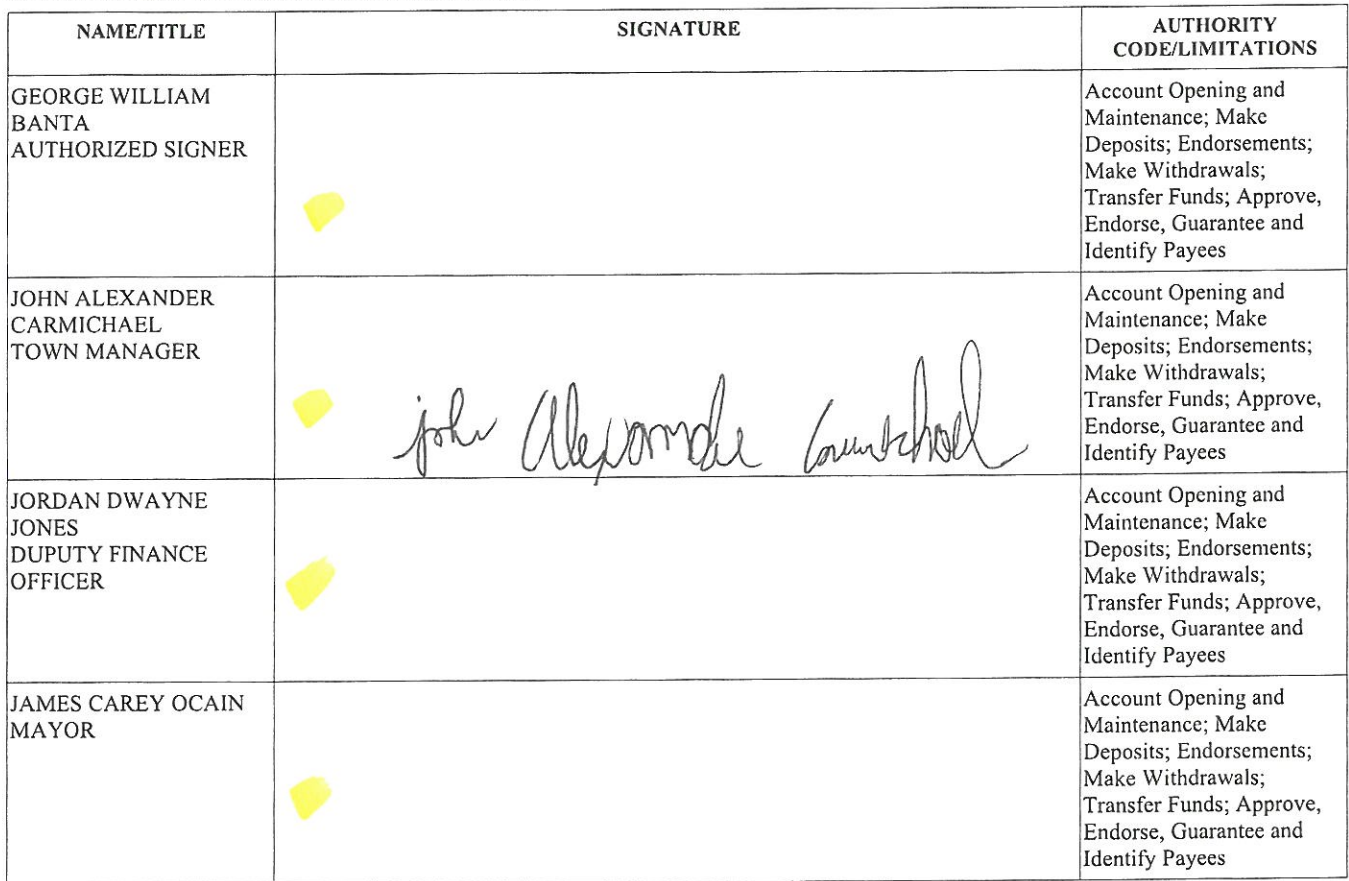 NAME/TITLE
SIGNATURE
AUTHORITY
CODE/LIMITATIONS
GEORGE WILLIAM
BANTA
AUTHORIZED SIGNER
Account Opening and
Maintenance; Make
Deposits; Endorsements;
Make Withdrawals;
Transfer Funds; Approve,
Endorse, Guarantee and
Identify Payees
JOHN ALEXANDER
CARMICHAEL
TOWN MANAGER
john Alexander Carmichael
Account Opening and
Maintenance; Make
Deposits; Endorsements;
Make Withdrawals;
Transfer Funds; Approve,
Endorse, Guarantee and
Identify Payees
JORDAN DWAYNE
JONES
DUPUTY FINANCE
OFFICER
Account Opening and
Maintenance; Make
Deposits; Endorsements;
Make Withdrawals;
Transfer Funds; Approve,
Endorse, Guarantee and
Identify Payees
JAMES CAREY OCAIN
MAYOR
Account Opening and
Maintenance; Make
Deposits; Endorsements;
Make Withdrawals;
Transfer Funds; Approve,
Endorse, Guarantee and
Identify Payees